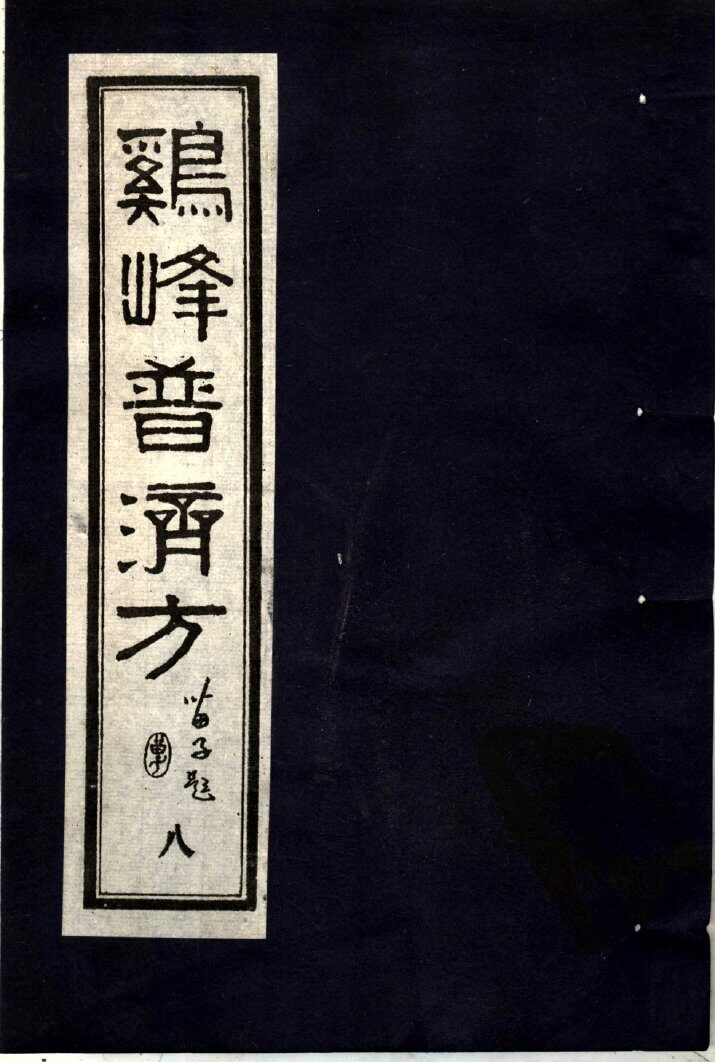 鷄峰普濟方
苗子題
八